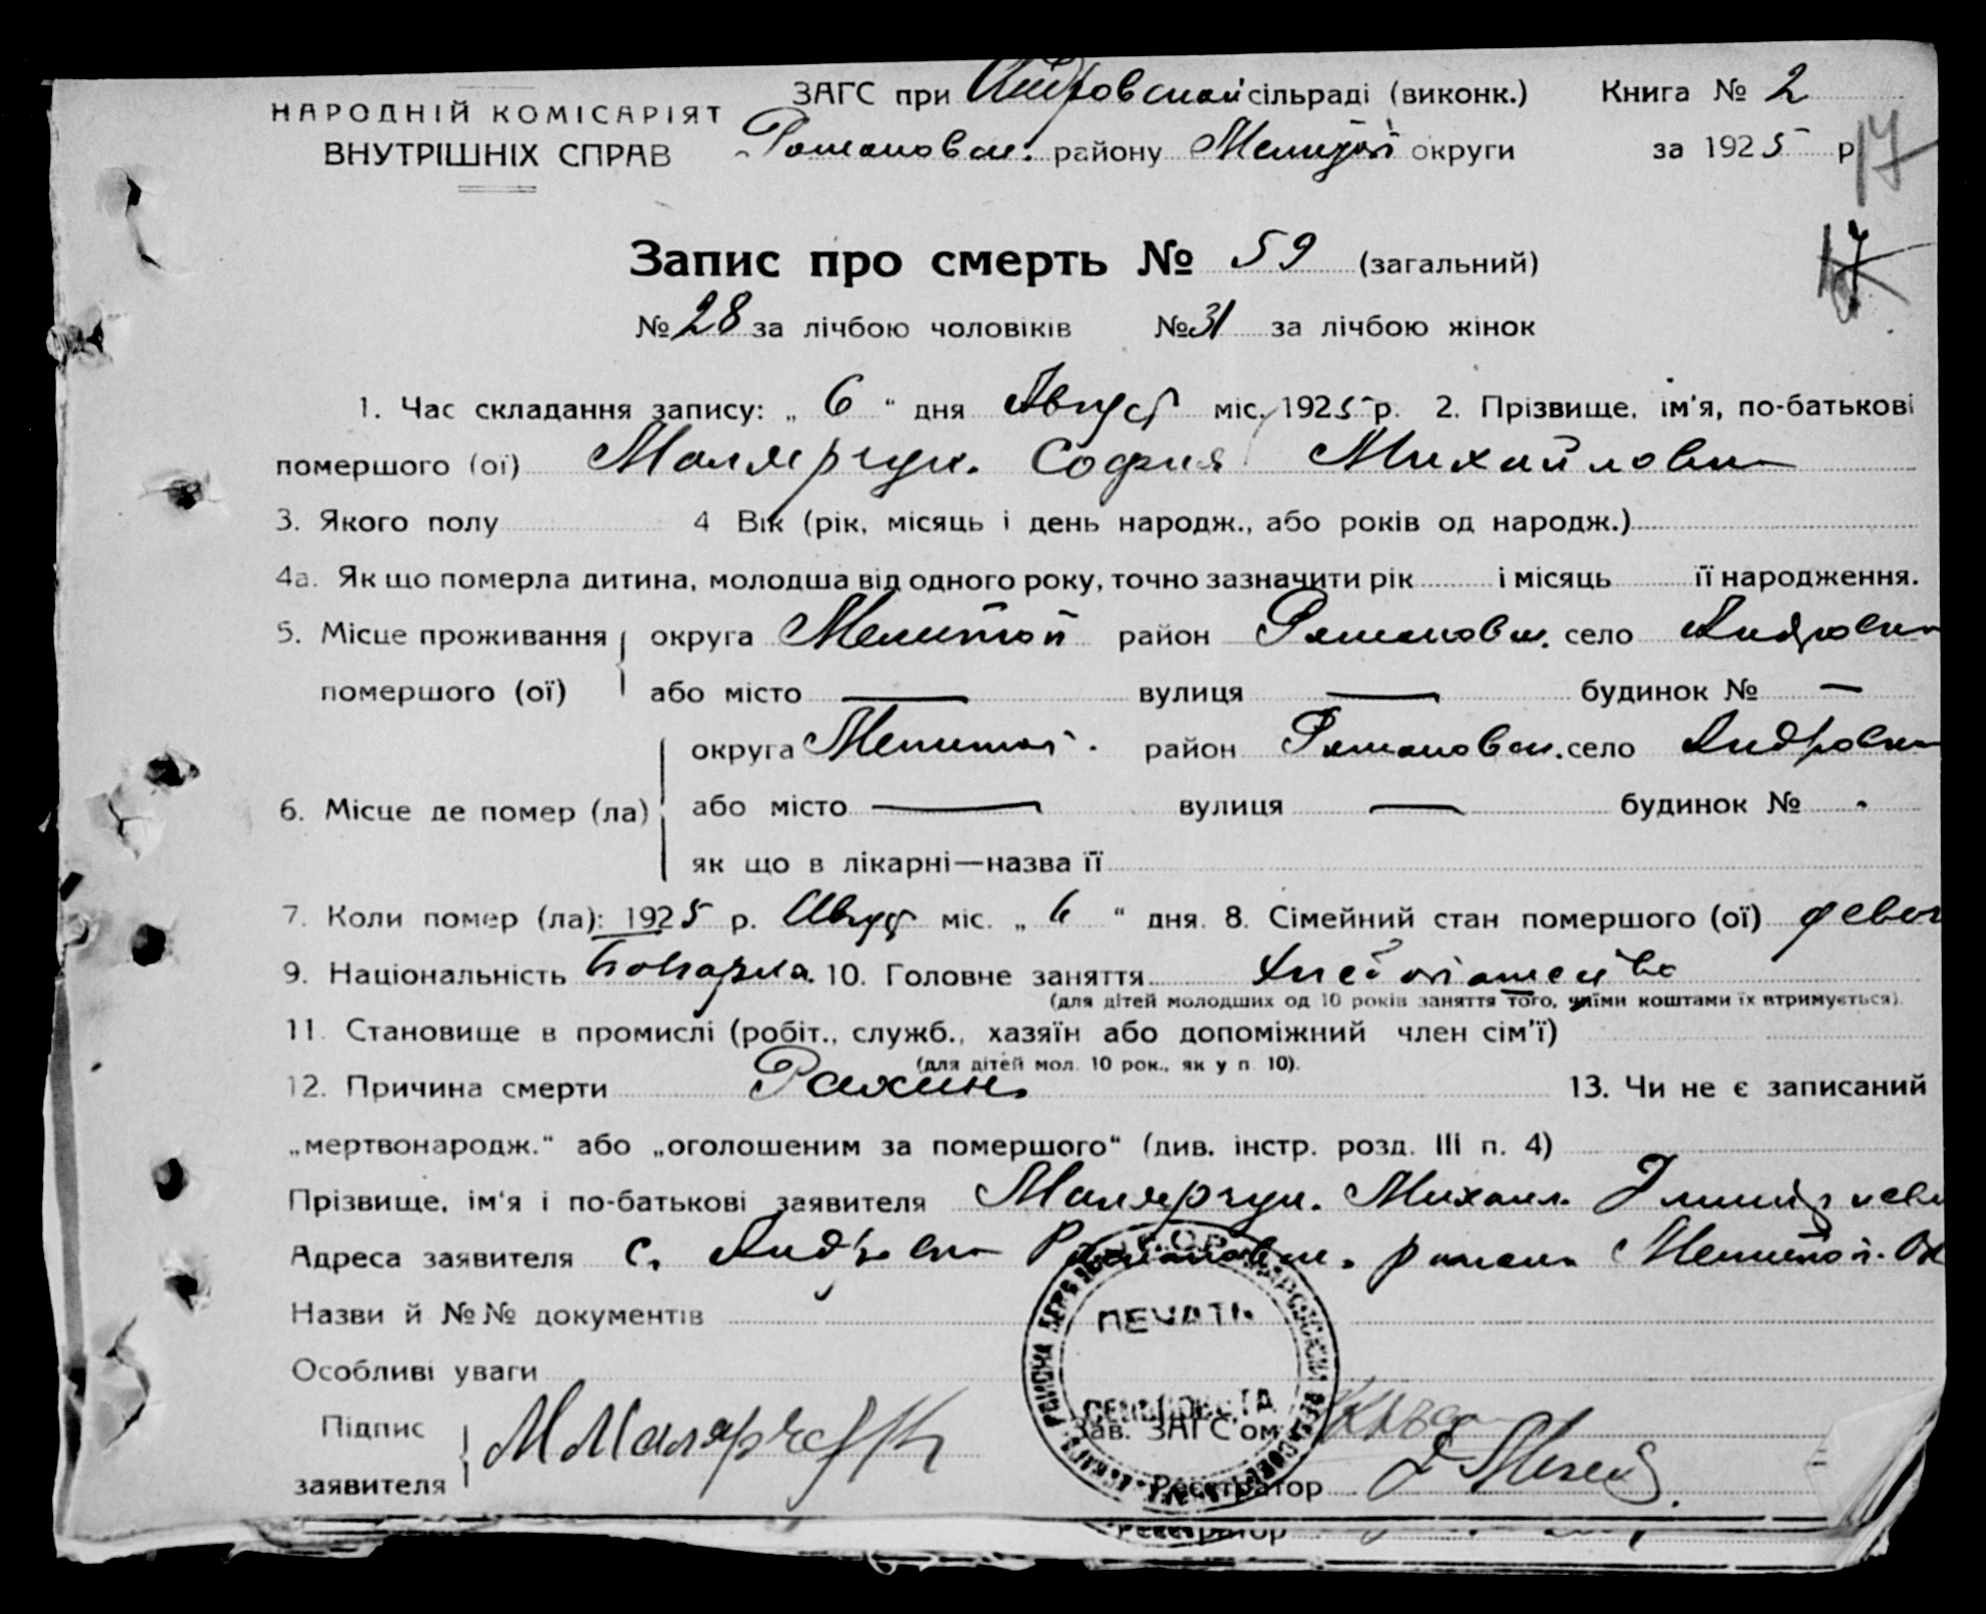 НАРОДНІЙ КОМІСАРІЯТ
ВНУТРІШНІХ СПРАВ
ЗАГС при Андровской сільраді (виконк.) Книга № 2
Романовск. району Мелитоп округи за 1925 р
17
Запис про смерть № 59 (загальний)
№ 28 за лічбою чоловіків № 31 за лічбою жінок
1. Час складання запису: „ 6 “ дня Август міс. 1925 р. 2. Прізвище, ім'я, по-батькові
помершого (ої) Малярчук. София Михайловна
3. Якого полу 4 Вік (рік, місяць і день народж., або років од народж.)
4а. Як що померла дитина, молодша від одного року, точно зазначити рік і місяць її народження.
5. Місце проживання округа Мелитоп район Романовск. село Андровка
помершого (ої) або місто — вулиця — будинок № —
округа Мелитоп. район Романовск. село Андровка
6. Місце де помер (ла) або місто — вулиця — будинок №
як що в лікарні—назва її
7. Коли помер (ла): 1925 р. Август міс. „ 6 “ дня. 8. Сімейний стан помершого (ої)
9. Національність 10. Головне заняття
(для дітей молодших од 10 років заняття того, чиїми коштами їх втримується).
11. Становище в промислі (робіт., служб., хазяїн або допоміжний член сім'ї)
(для дітей мол. 10 рок., як у п. 10).
12. Причина смерти 13. Чи не є записаний
„мертвонародж.“ або „оголошеним за помершого“ (див. інстр. розд. III п. 4)
Прізвище, ім'я і по-батькові заявителя Малярчук. Михаил.
Адреса заявителя с. Андровка Романовск. района Мелитоп. Ок
Назви й №№ документів
Особливі уваги
ПЕЧАТЬ
Підпис
Зав. ЗАГС'ом
заявителя М Малярчук
Реєстратор
Реєстратор